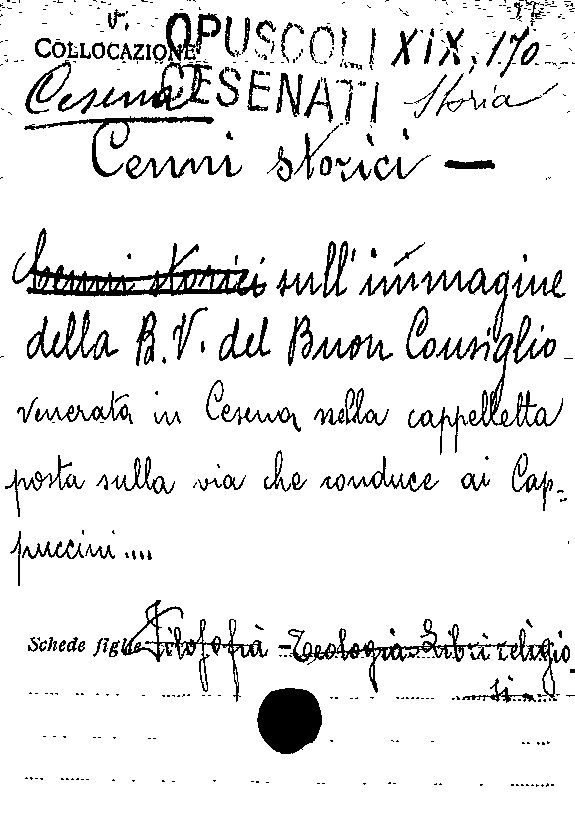 v.
COLLOCAZIONE OPUSCOLI XIX, 170
Cesena CESENATI Storia
Cenni storici —
Cenni storici sull'immagine
della B.V. del Buon Consiglio
venerata in Cesena nella cappelletta
posta sulla via che conduce ai Cap-
puccini....
Schede figlie Filosofia - Teologia - Libri religio
si -